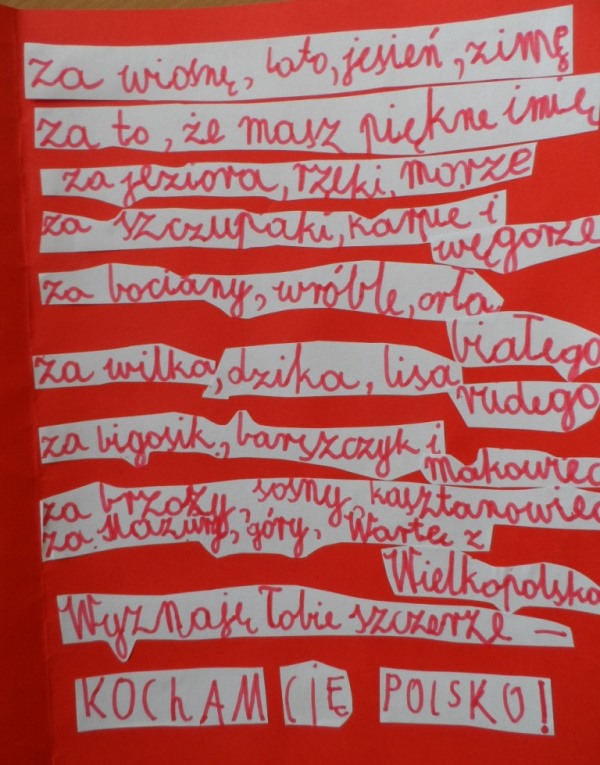 za wiosnę, lato, jesień, zimę
za to, że masz piękne imię,
za jeziora, rzeki, morze
za szczupaki, karpie i
węgorze
za bociany, wróble, orła
białego
za wilka, dzika, lisa
rudego
za bigosik, barszczyk i
makowiec
za brzozy, sosny, kasztanowiec
za Mazury, góry, Wartę z
Wielkopolską
Wyznaję Tobie szczerze –
KOCHAM CIĘ POLSKO!